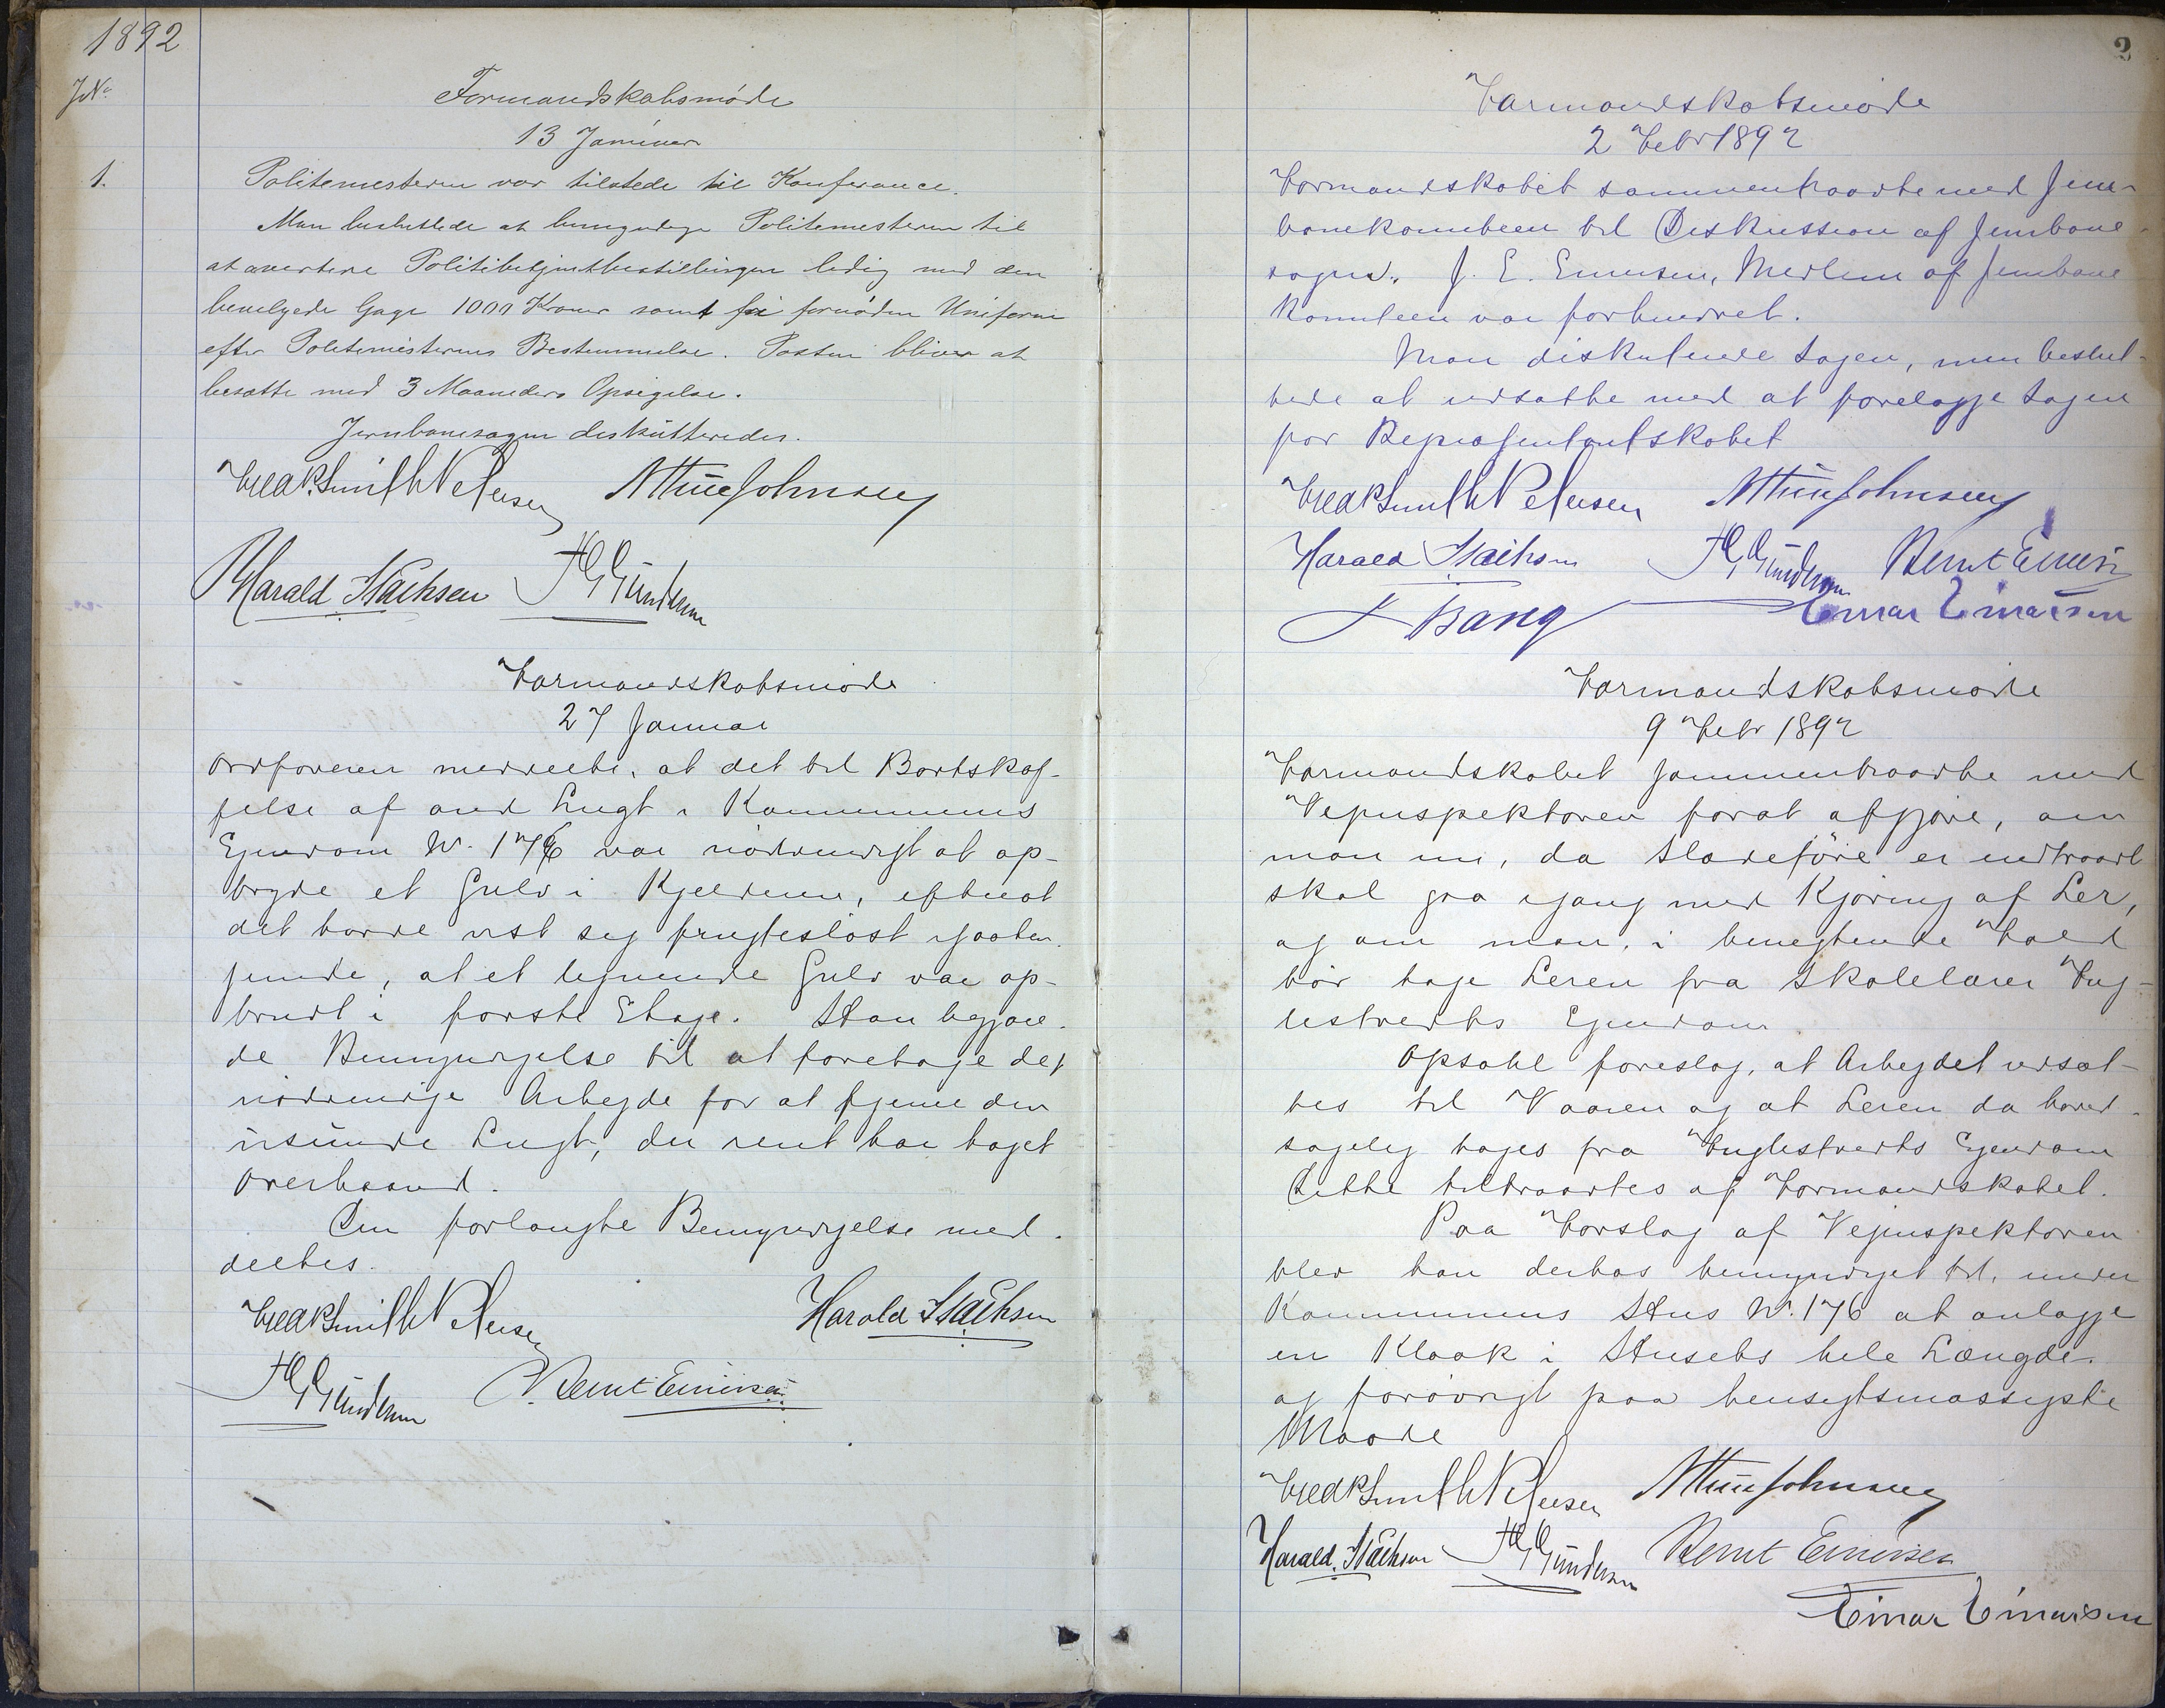 1892
JNo
Formandskabsmöde
13 Januar
1.
Politimesteren var tilstede til Konferance.
Man besluttede at bemyndige Politimesteren til
at avertere Politibetjentbestillingen ledig med den
bevilgede Gage 1000 Kroner samt fri fornöden Uniform
efter Politimesterens Bestemmelse. Posten bliver at
besætte med 3 Maaneders Opsigelse.
Jernbanesagen diskutteredes.
Fredk Smith Petersen
Harald Isachsen H G Gundersen
Formandskabsmöde
27 Januar
Ordföreren meddelte, at det til Bortskaf-
felse af ond Lugt i Kommunens
Ejendom No. 176 var nödvendigt at op-
bryde et Gulv i Kjelderen, efterat
det havde vist sig frugteslöst igaaten
at et lignende Gulv var op-
brudt i förste Etage. Han begjær-
de Bemyndigelse til at foretage det
nödvendige Arbejde for at fjerne den
usunde Lugt, der rent har taget
Overhaand.
Den forlangte Bemyndigelse med-
deeltes.
Fredk Smith Petersen Harald Isachsen
H G Gundersen Bernt Evensen
2
Formandskabsmöde
2 Febr 1892
Formandskabet sammentraadte med Jern-
banekomiteen til Diskussion af Jernbane-
sagen. J. E. Evensen, Medlem af Jernbane
Komiteen var forhindret.
Man diskuterede Sagen, men beslut-
tede at udsætte med at forelægge Sagen
for Repræsentantskabet
Fredk Smith Petersen
Harald Isachsen H G Gundersen Bernt Evensen
Bang Einar Einarsen
Formandskabsmöde
9 Febr 1892
Formandskabet sammentraadte med
Vejinspektoren forat afgjöre, om
man nu, da Slædeföre er indtraadt
skal gaa igang med Kjöring af Ler,
og om man, i benegtende Fald
bör tage Leren fra Skolelærer Fug-
lestvedts Ejendom
Opsahl foreslog, at Arbejdet udsæt-
tes til Vaaren og at Leren da hoved-
sagelig tages fra Fuglestvedts Ejendom
Dette tiltraadtes af Formandskabet.
Paa Forslag af Vejinspektoren
blev han derhos bemyndiget til, under
Kommunens Hus No. 176 at anlægge
en Kloak i Husets hele Længde
og forövrigt paa hensigtsmæssigste
Maade
Fredk Smith Petersen
Harald Isachsen H G Gundersen Bernt Evensen
Einar Einarsen